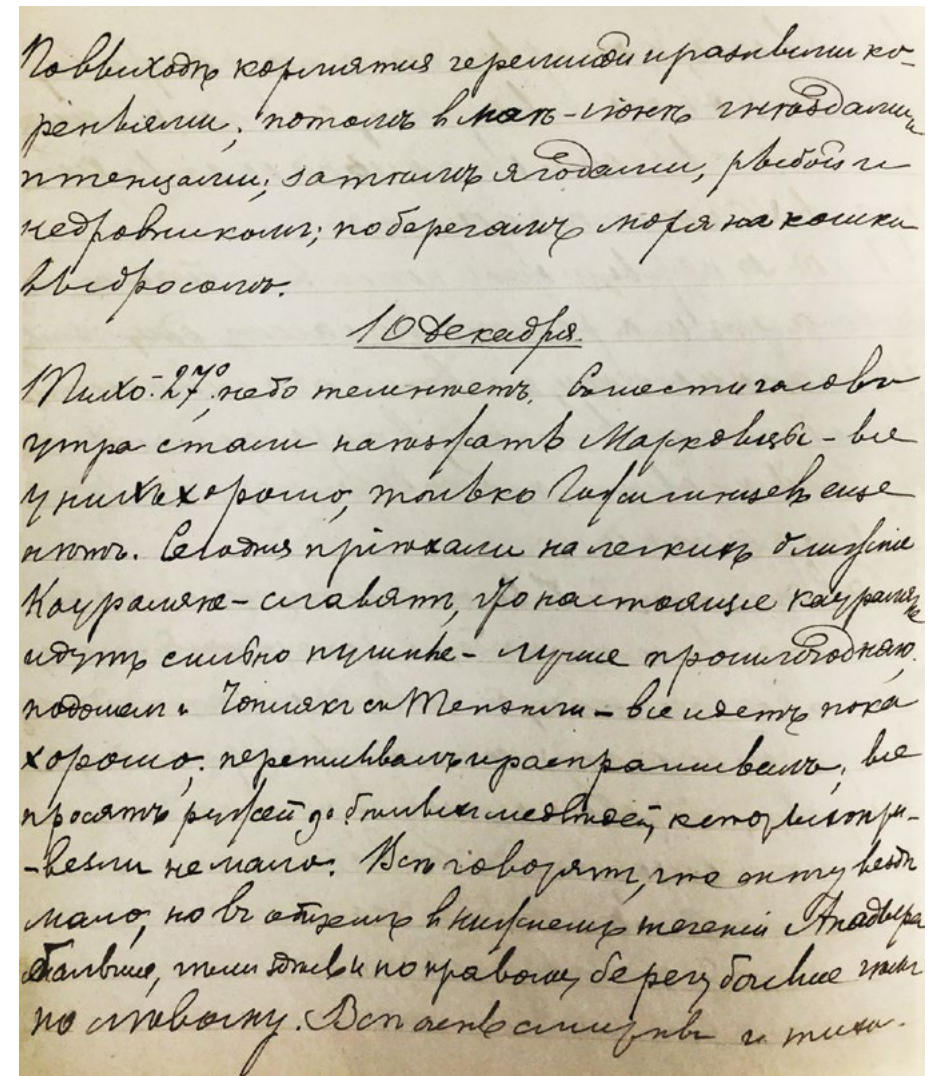 По выходѣ кормятся черемшой и разными ко-
реньями; потомъ в маѣ-іюнѣ гнѣздами и
птенцами; затѣмъ ягодами, рыбой и
кедровникомъ; по берегамъ моря на кошки
выбросомъ.
10 Декабря.
Тихо -27° небо темнѣетъ. Въ шести часовъ
утра стали наѣзжать Марковцы - все
у нихъ хорошо, только еще
нѣтъ. Сегодня пріѣхали на легкихъ ближніе
Кауралане - славятъ, что настоящіе кауралане
идутъ сильно пушные - лучше прошлогодняго.
подошел и съ - все идетъ пока
хорошо; и распрашивалъ, все
просятъ ружей до бѣлыхъ медвѣдей, которыхъ при-
-везли не мало. Всѣ говорятъ, что снѣгу вездѣ
мало, но въ общемъ в нижнемъ теченіи Анадыра
больше, и по правому берегу больше чѣмъ
по лѣвому. Всѣ очень смирны и тихи.